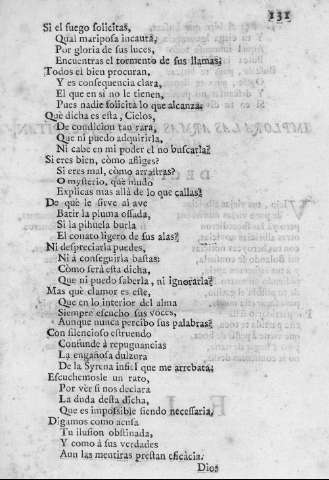 131
Si el fuego solicitas,
Qual mariposa incauta,
Por gloria de sus luces,
Encuentras el tormento de sus llamas;
Todos el bien procuran,
Y es consequencia clara,
El que en sì no le tienen,
Pues nadie solicita lo que alcanza.
Què dicha es esta, Cielos,
De condicion tan rara,
Que ni puedo adquirirla,
Ni cabe en mi poder el no buscarla?
Si eres bien, còmo afliges?
Si eres mal, còmo arrastras?
O mysterio, que mudo
Explicas mas allà de lo que callas!
De què le sirve al ave
Batir la pluma ossada,
Si la pihuela burla
El conato ligero de sus alas?
Ni despreciarla puedes,
Ni à conseguirla bastas;
Còmo serà esta dicha,
Que ni puedo saberla, ni ignorarla?
Mas què clamor es este,
Que en lo interior del alma
Siempre escucho sus voces,
Aunque nunca percibo sus palabras?
Con silencioso estruendo
Confunde à repugnancias
La engañosa dulzura
De la Syrena infiel que me arrebata;
Escuchemosle un rato,
Por vèr si nos declara
La duda desta dicha,
Que es impossible siendo necessaria.
Digamos como acusa
Tu ilusion obstinada,
Y como à sus verdades
Aun las mentiras prestan eficàcia.
Dios